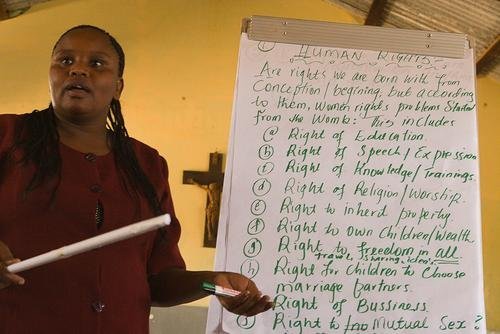 HUMAN RIGHTS:-
Are rights we are born with from
Conception/begining, but according
to them, women rights problems Started
from the Womb: This includes
(a) Right of Education.
(b) Right of Speech/Expression
(c) Right of Knowledge/Trainings.
(d) Right of Religion/Worship.
(e) Right to inherit property.
(f) Right to own Children/Wealth
(g) Right to freedom in all
travel, sharing idea's
(h) Right for Children to Choose
marriage partners.
Right of Bussiness.
Right to Mutual Sex?